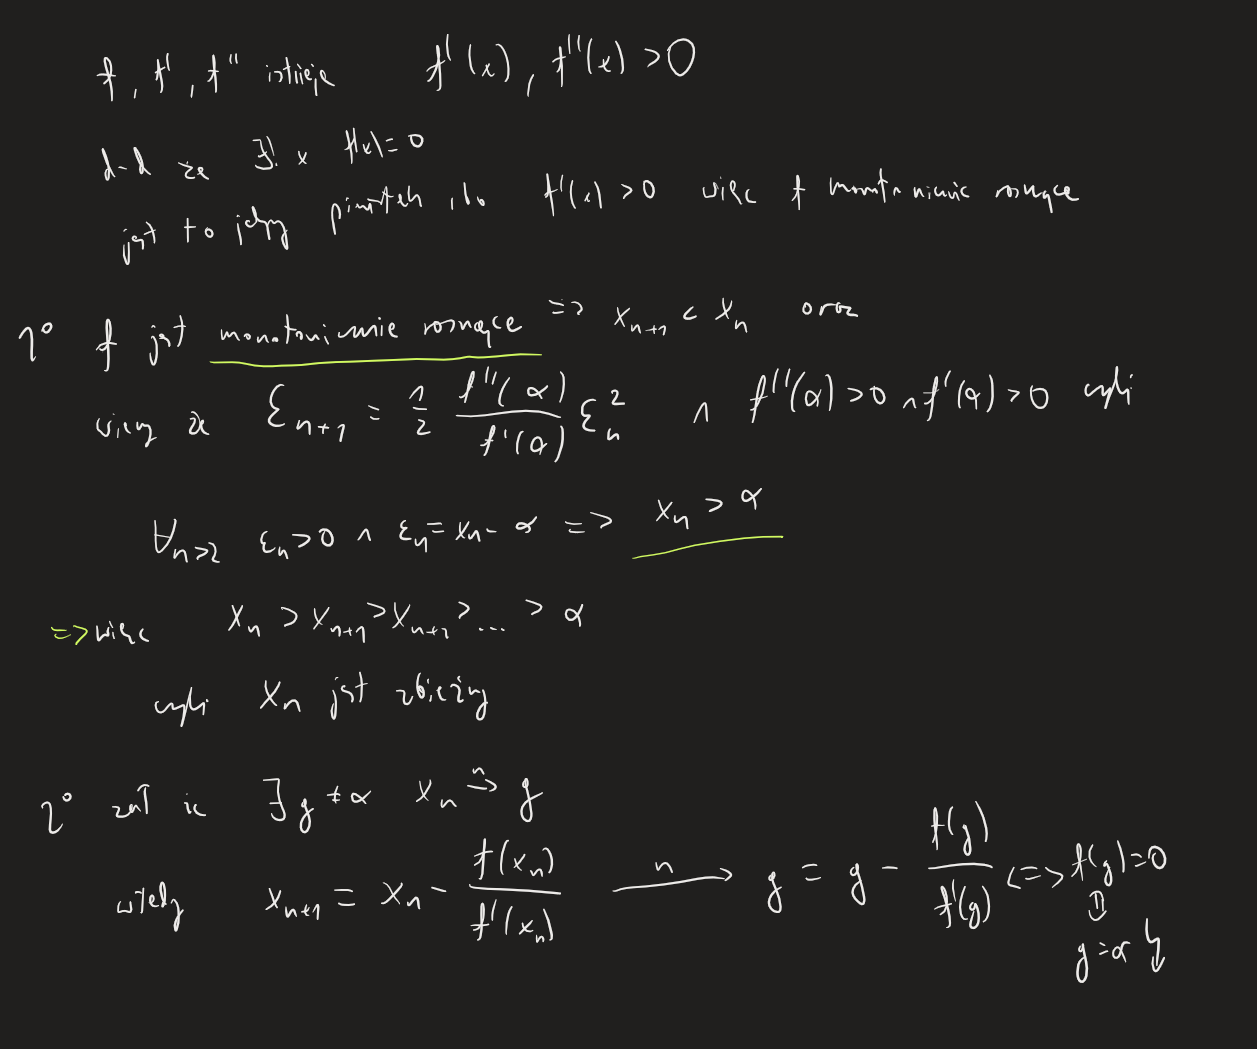 f, f', f'' istnieje f'(x), f''(x) > 0
d-d że ∃! x f(x) = 0
jest to jedyny pierwiastek, bo f'(x) > 0 więc f monotonicznie rosnące
1° f jest monotonicznie rosnące => x_{n+1} < x_n oraz
wiemy że ε_{n+1} = 1/2 f''(α)/f'(α) ε_n^2 ∧ f''(α) > 0 ∧ f'(α) > 0 czyli
∀_{n>2} ε_n > 0 ∧ ε_n = x_n - α => x_n > α
=> więc x_n > x_{n+1} > x_{n+2} > ... > α
czyli x_n jest zbieżny
2° zał że ∃ g ≠ α x_n →^n g
wtedy x_{n+1} = x_n - f(x_n)/f'(x_n) →^n g = g - f(g)/f'(g) <=> f(g) = 0
⇓
g = α ↯